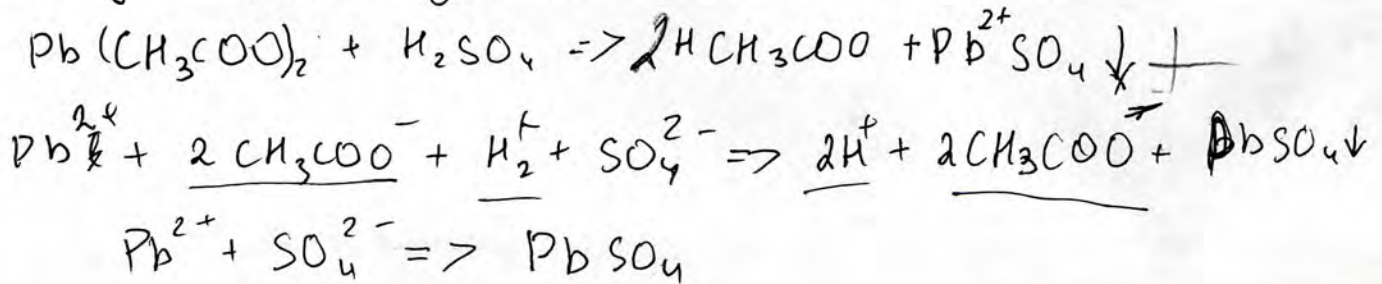 Pb(CH₃COO)₂ + H₂SO₄ => 2HCH₃COO + Pb²⁺SO₄↓ +
Pb²⁺ + 2CH₃COO⁻ + H₂⁺ + SO₄²⁻ => 2H⁺ + 2CH₃COO⁻ + PbSO₄↓
Pb²⁺ + SO₄²⁻ => PbSO₄